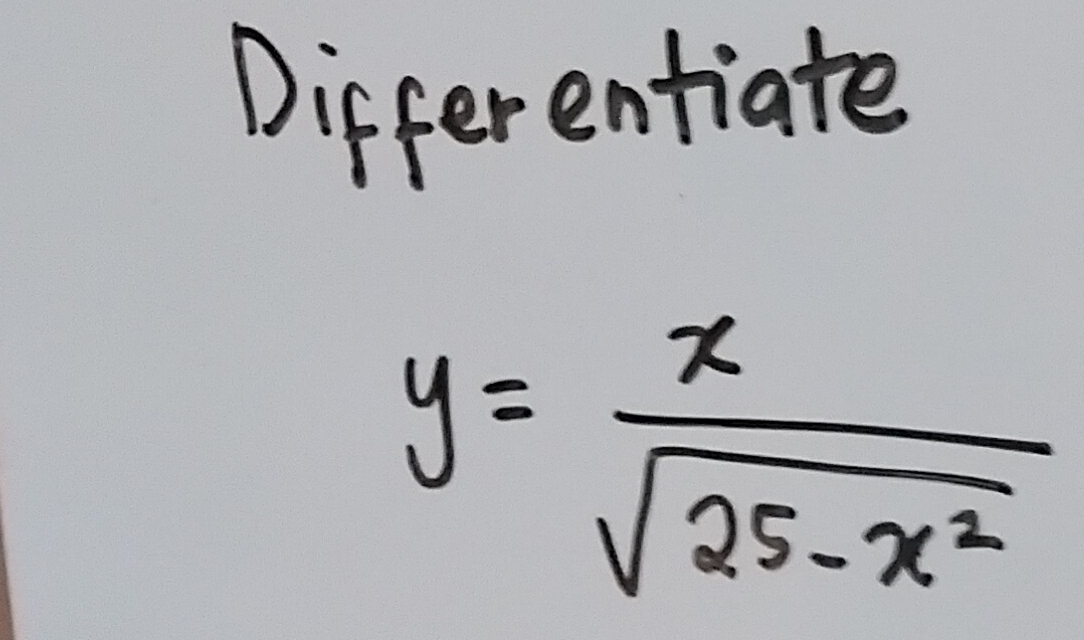 Differentiate
y = x / √(25 - x²)